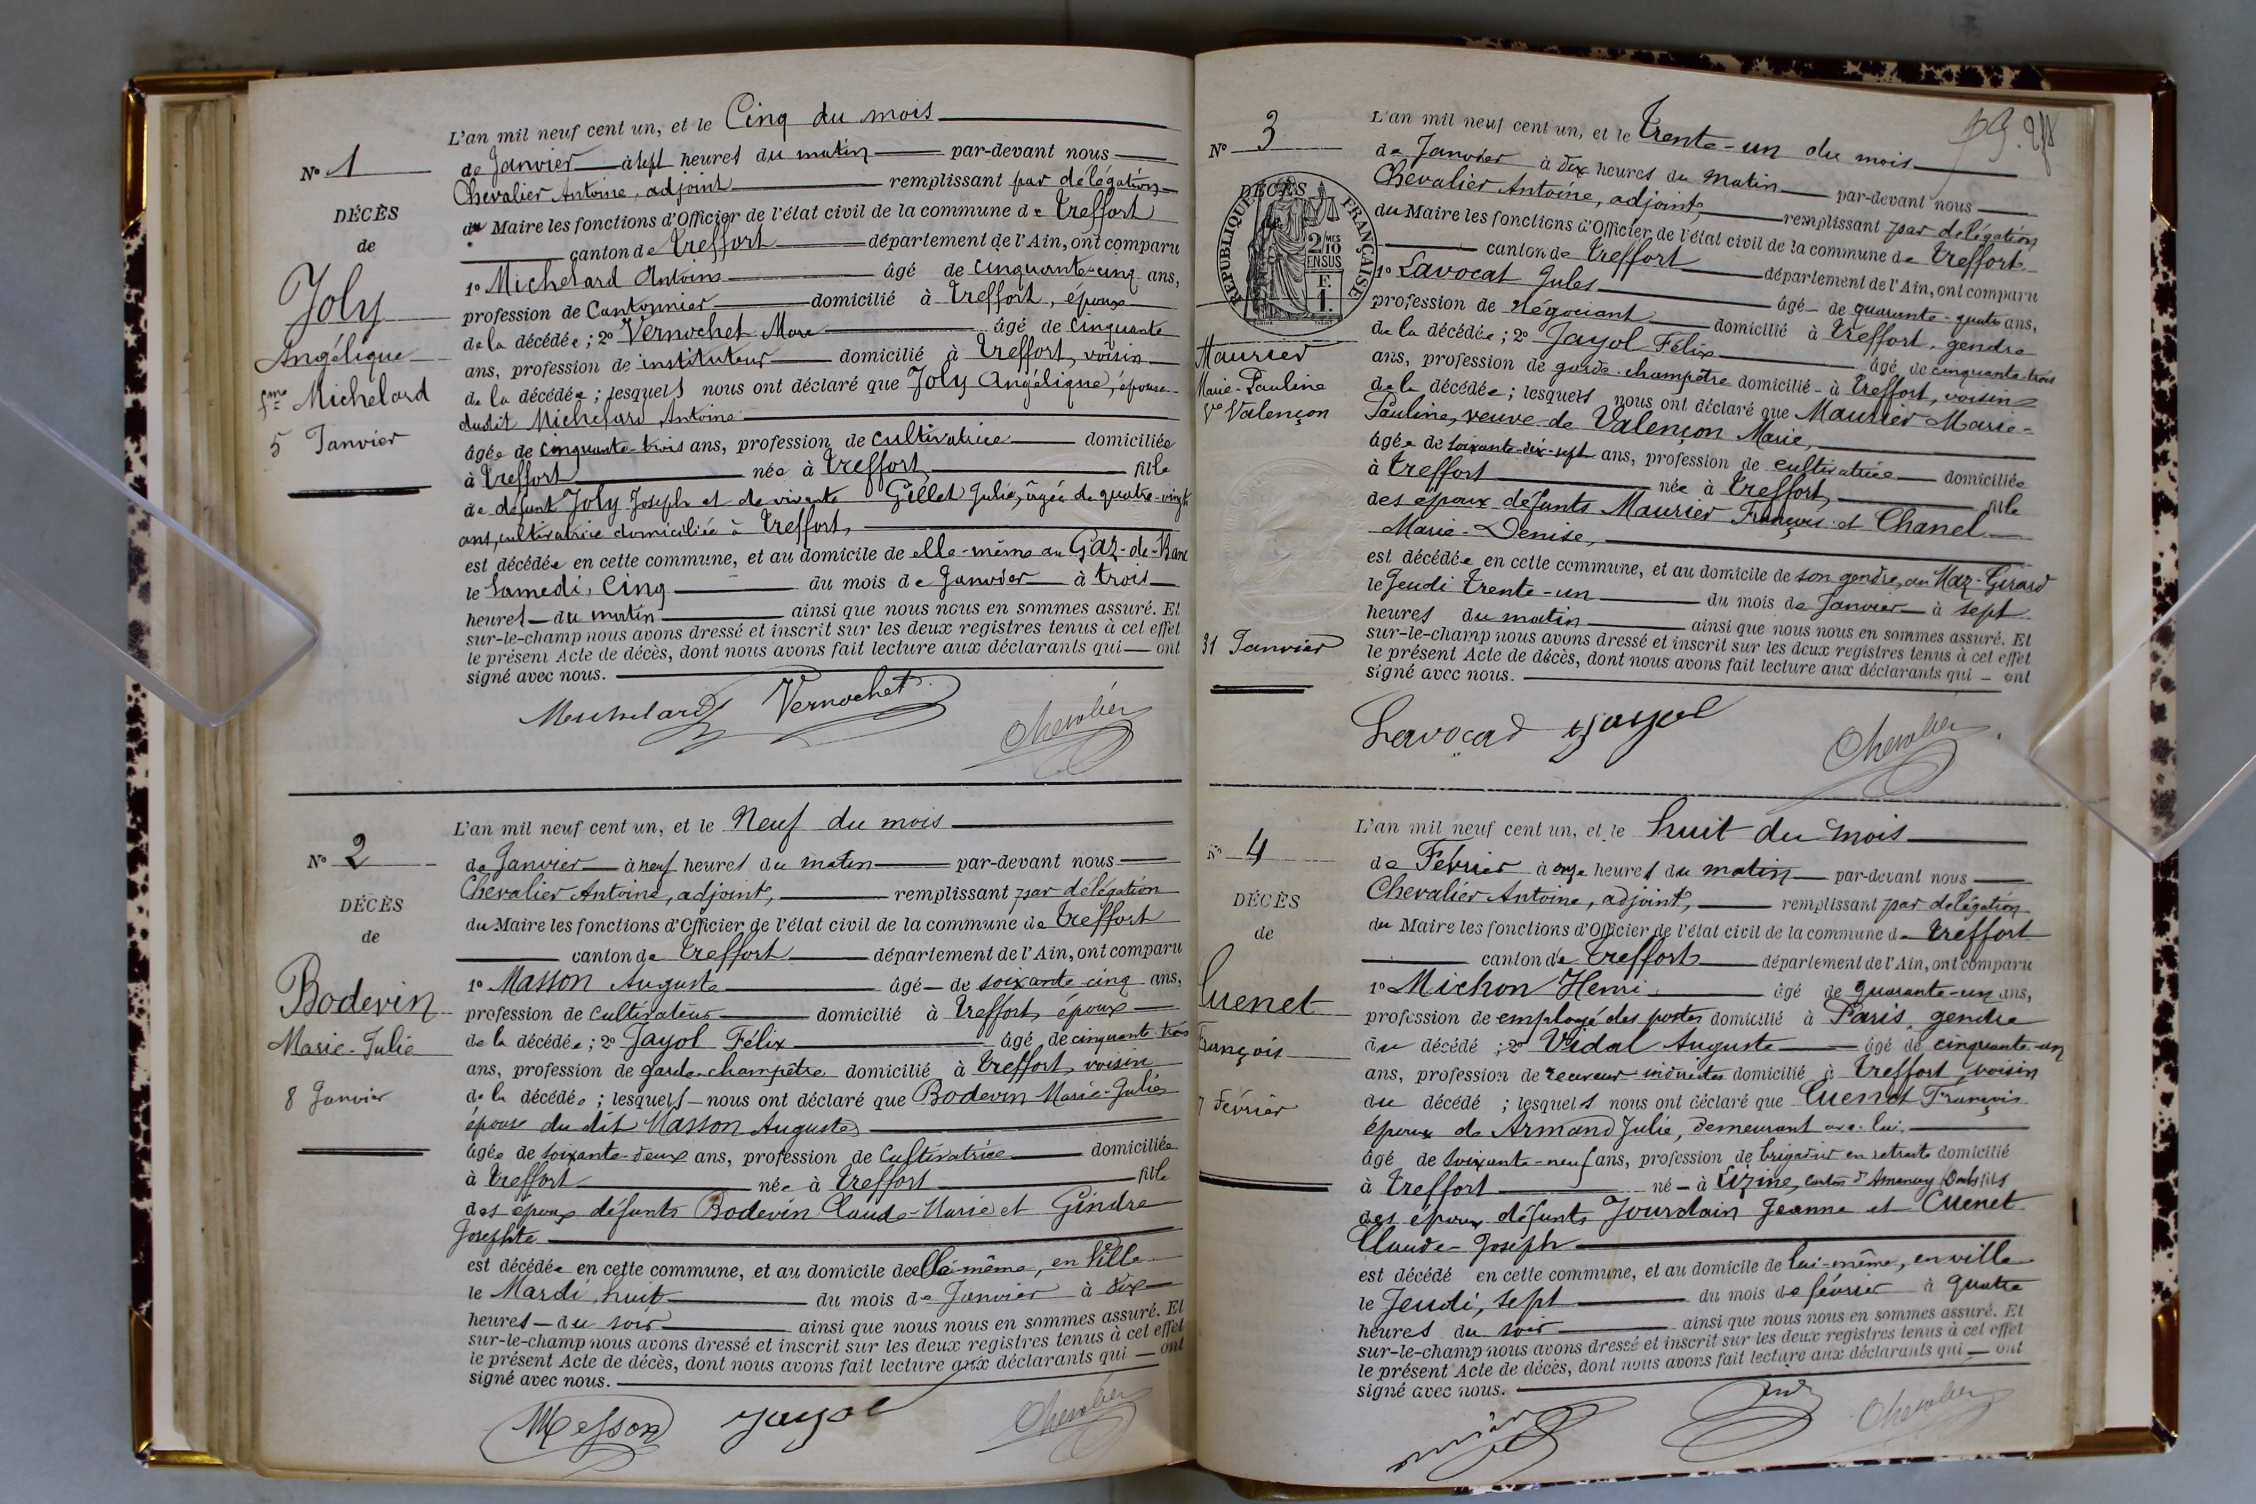 N° 1
DÉCÈS
de
Joly
Angélique
fme Michelard
5 Janvier
L'an mil neuf cent un, et le Cinq du mois
de Janvier à sept heures du matin par-devant nous
Chevalier Antoine, adjoint remplissant par délégation
du Maire les fonctions d'Officier de l'état civil de la commune de Treffort
canton de Treffort département de l'Ain, ont comparu
1° Michelard Antoine âgé de cinquante-cinq ans,
profession de Cantonnier domicilié à Treffort, époux
de la décédée; 2° Vernochet Marc âgé de cinquante
ans, profession de instituteur domicilié à Treffort, voisin
de la décédée; lesquels nous ont déclaré que Joly Angélique, épouse
dudit Michelard Antoine
âgée de cinquante-trois ans, profession de cultivatrice domiciliée
à Treffort née à Treffort, fille
de défunt Joly Joseph et de vivante Gillet Julie, âgée de quatre-vingt
ans, cultivatrice domiciliée à Treffort,
est décédée en cette commune, et au domicile de elle-même au
le Samedi, Cinq du mois de Janvier à trois
heures du matin ainsi que nous nous en sommes assuré. Et
sur-le-champ nous avons dressé et inscrit sur les deux registres tenus à cet effet
le présent Acte de décès, dont nous avons fait lecture aux déclarants qui ont
signé avec nous.
Michelard Vernochet Chevalier
N° 2
DÉCÈS
de
Bodevin
Marie-Julie
8 Janvier
L'an mil neuf cent un, et le Neuf du mois
de Janvier à neuf heures du matin par-devant nous
Chevalier Antoine, adjoint, remplissant par délégation
du Maire les fonctions d'Officier de l'état civil de la commune de Treffort
canton de Treffort département de l'Ain, ont comparu
1° Masson Auguste âgé de soixante-cinq ans,
profession de cultivateur domicilié à Treffort, époux
de la décédée; 2° Jayol Félix âgé de cinquante-trois
ans, profession de garde-champêtre domicilié à Treffort, voisin
de la décédée; lesquels nous ont déclaré que Bodevin Marie-Julie
épouse du dit Masson Auguste
âgée de soixante-deux ans, profession de Cultivatrice domiciliée
à Treffort née à Treffort fille
des époux défunts Bodevin Claude-Marie et Gindre
Josephte
est décédée en cette commune, et au domicile de elle-même, en Ville
le Mardi, huit du mois de Janvier à dix
heures du soir ainsi que nous nous en sommes assuré. Et
sur-le-champ nous avons dressé et inscrit sur les deux registres tenus à cet effet
le présent Acte de décès, dont nous avons fait lecture aux déclarants qui ont
signé avec nous.
Messon Jayol Chevalier
N° 3
DÉCÈS
de
RÉPUBLIQUE FRANÇAISE
2 MES
10
EN SUS
Maurier
Marie-Pauline
Ve Valençon
31 Janvier
L'an mil neuf cent un, et le Trente-un du mois
de Janvier à dix heures du matin par-devant nous
Chevalier Antoine, adjoint, remplissant par délégation
du Maire les fonctions d'Officier de l'état civil de la commune de Treffort
canton de Treffort département de l'Ain, ont comparu
1° Lavocat Jules âgé de quarante-quatre ans,
profession de négociant domicilié à Treffort, gendre
de la décédée; 2° Jayol Félix âgé de cinquante-trois
ans, profession de garde-champêtre domicilié à Treffort, voisin
de la décédée; lesquels nous ont déclaré que Maurier Marie-
Pauline, veuve de Valençon Marie,
âgée de soixante-dix-sept ans, profession de cultivatrice domiciliée
à Treffort née à Treffort, fille
des époux défunts Maurier François et Chanel
Marie-Denise,
est décédée en cette commune, et au domicile de son gendre, au Maz-Girard
le Jeudi Trente-un du mois de Janvier à sept
heures du matin ainsi que nous nous en sommes assuré. Et
sur-le-champ nous avons dressé et inscrit sur les deux registres tenus à cet effet
le présent Acte de décès, dont nous avons fait lecture aux déclarants qui ont
signé avec nous.
Lavocat Jayol Chevalier
N° 4
DÉCÈS
de
Cuenet
François
7 Février
L'an mil neuf cent un, et le huit du mois
de Février à onze heures du matin par-devant nous
Chevalier Antoine, adjoint, remplissant par délégation
du Maire les fonctions d'Officier de l'état civil de la commune de Treffort
canton de Treffort département de l'Ain, ont comparu
1° Michon Henri âgé de quarante-un ans,
profession de employé des postes domicilié à Paris, gendre
du décédé; 2° Vidal Auguste âgé de cinquante-un
ans, profession de receveur indirectes domicilié à Treffort, voisin
du décédé; lesquels nous ont déclaré que Cuenet François
époux de Armand Julie, demeurant avec lui,
âgé de soixante-neuf ans, profession de brigadier en retraite domicilié
à Treffort né à Lizine, canton d'Amancey (Doubs) fils
des époux défunts Jourdain Jeanne et Cuenet
Claude-Joseph
est décédé en cette commune, et au domicile de lui-même, en ville
le Jeudi, sept du mois de février à quatre
heures du soir ainsi que nous nous en sommes assuré. Et
sur-le-champ nous avons dressé et inscrit sur les deux registres tenus à cet effet
le présent Acte de décès, dont nous avons fait lecture aux déclarants qui ont
signé avec nous.
Chevalier